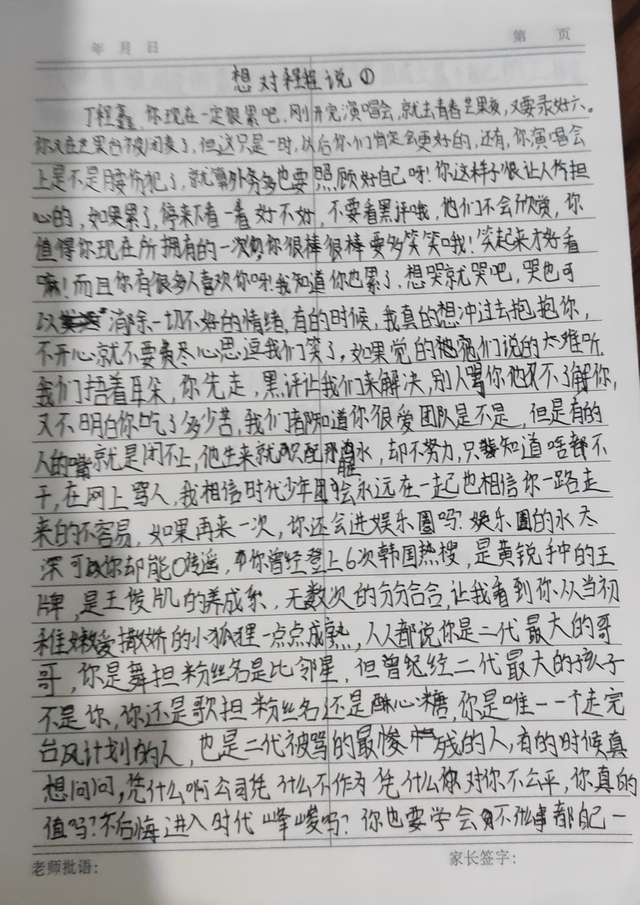 年 月 日 第 页
想对程程说①
丁程鑫,你现在一定很累吧,刚开完演唱会,就去青春芒果夜,又要录好六。
你又在芒果台被闭麦了,但这只是一时,以后你们肯定会更好的,还有,你演唱会
上是不是腰伤犯了,就算外务多也要照顾好自己呀!你这样子很让人担
心的,如果累了,停下来看一看好不好,不要看黑评哦,他们不会欣赏,你
值得你现在所拥有的一次 你很棒很棒要多笑笑哦!笑起来才好看
嘛!而且你有很多人喜欢你呀!我知道你也累了,想哭就哭吧,哭也可
以 消除一切不好的情绪,有的时候,我真的想冲过去抱抱你,
不开心就不要费尽心思逗我们笑了,如果觉的他们说的太难听
我们捂着耳朵,你先走,黑评让我们来解决,别人骂你他又不了解你,
又不明白你吃了多少苦,我们都知道你很爱团队是不是,但是有的
人的嘴就是闭不上,他生来就只配那 水,却不努力,只知道啥都不
干,在网上骂人,我相信时代少年团会永远在一起也相信你一路走
来的不容易,如果再来一次,你还会进娱乐圈吗?娱乐圈的水太
深可 你却能 ,你曾经登上6次韩国热搜,是黄锐手中的王
牌,是王俊凯的养成系,无数次的分分合合,让我看到你从当初
稚嫩爱撒娇的小狐狸一点点成熟,人人都说你是二代最大的哥
哥,你是舞担粉丝名是比邻星,但曾经二代最大的孩子
不是你,你还是歌担粉丝名还是酥心糖,你是唯一一个走完
台风计划的人,也是二代被骂的最惨 的人,有的时候真
想问问,凭什么啊公司凭什么不作为凭什么 对你不公平,你真的
值吗?不后悔进入时代峰峻吗?你也要学会 不 事都自己一
老师批语: 家长签字: